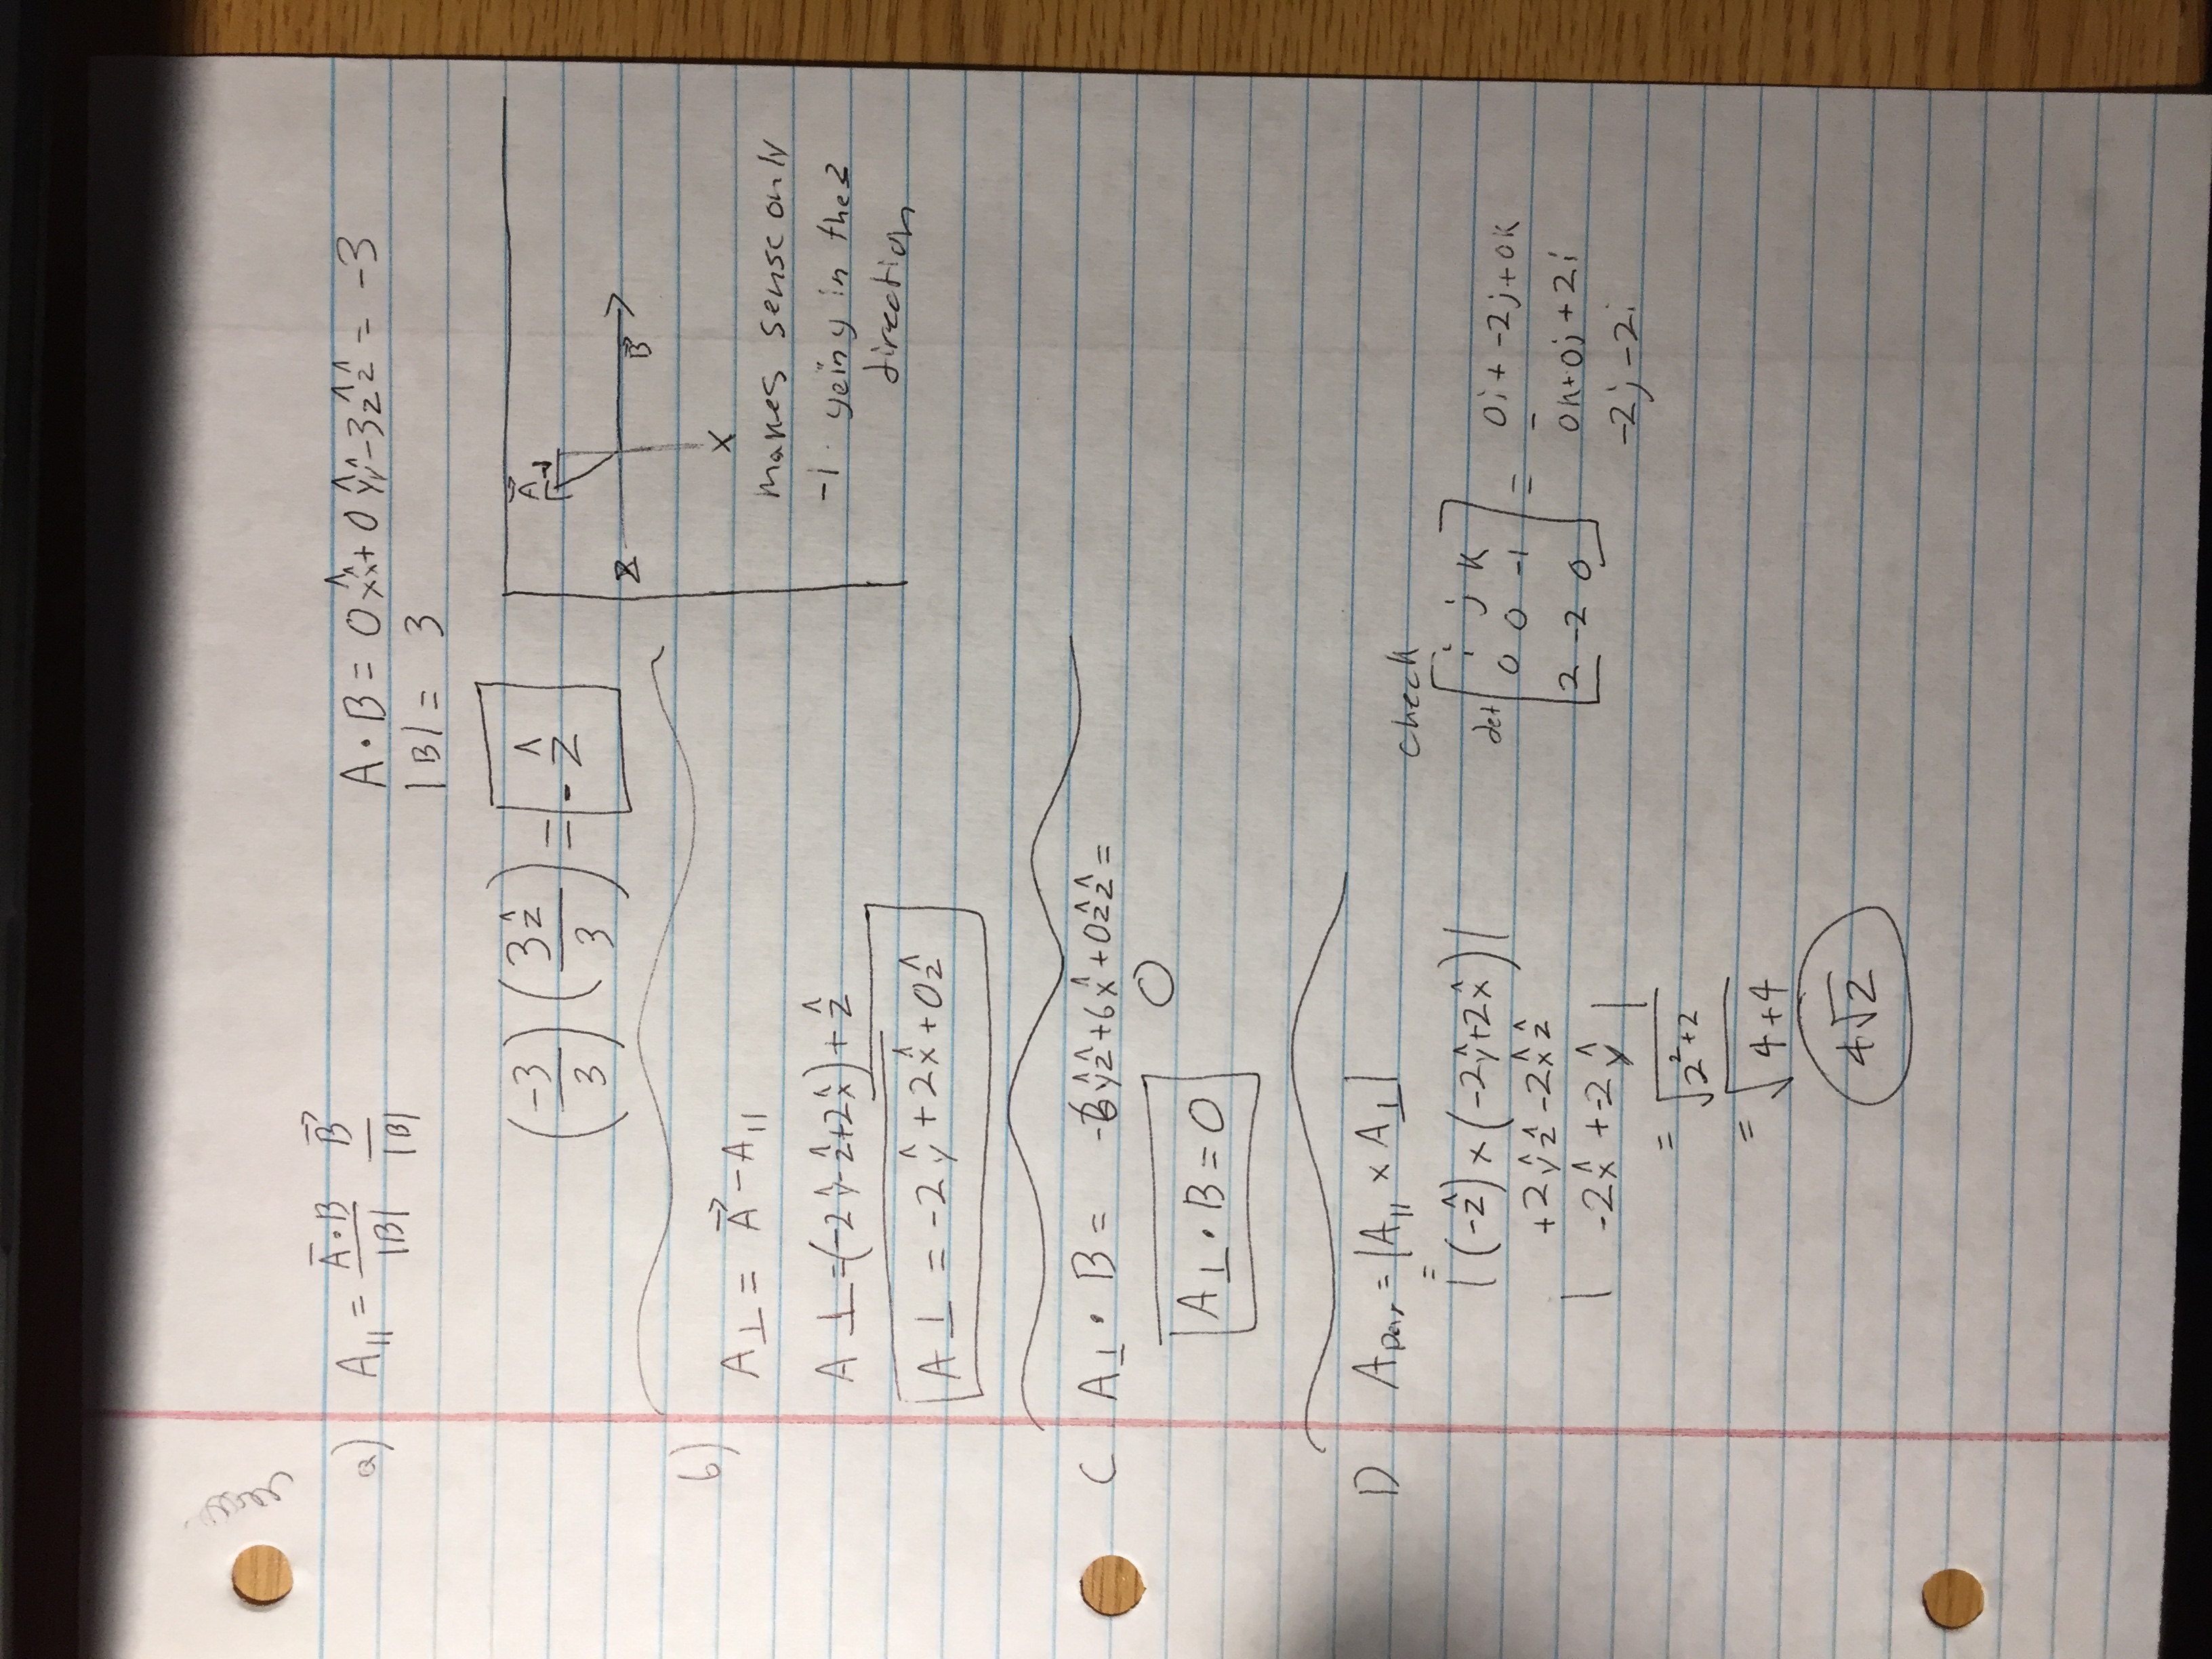 a) A∥ = A̅·B/|B| B⃗/|B|
A·B = 0x̂x̂ + 0ŷŷ - 3ẑẑ = -3
|B| = 3
(-3/3) (3ẑ/3) = -ẑ
A⃗
z
B⃗
x
makes sense only
-1 in the z
direction
b)
A⊥ = A⃗ - A∥
A⊥ = (-2ŷ-ẑ+2x̂) + ẑ
A⊥ = -2ŷ + 2x̂ + 0ẑ
C A⊥ · B = -6ŷẑ + 6x̂ + 0ẑẑ =
0
A⊥ · B = 0
D Apar = |A∥ × A⊥|
=
|(-ẑ) × (-2ŷ+2x̂)|
+2ŷẑ - 2x̂ẑ
| -2x̂ + -2ŷ |
= √(2²+2)
= √(4+4)
4√2
check
det [ i j k
0 0 -1
2 -2 0 ] = 0i + -2j + 0k
-
0k + 0j + 2i
-2j - 2i